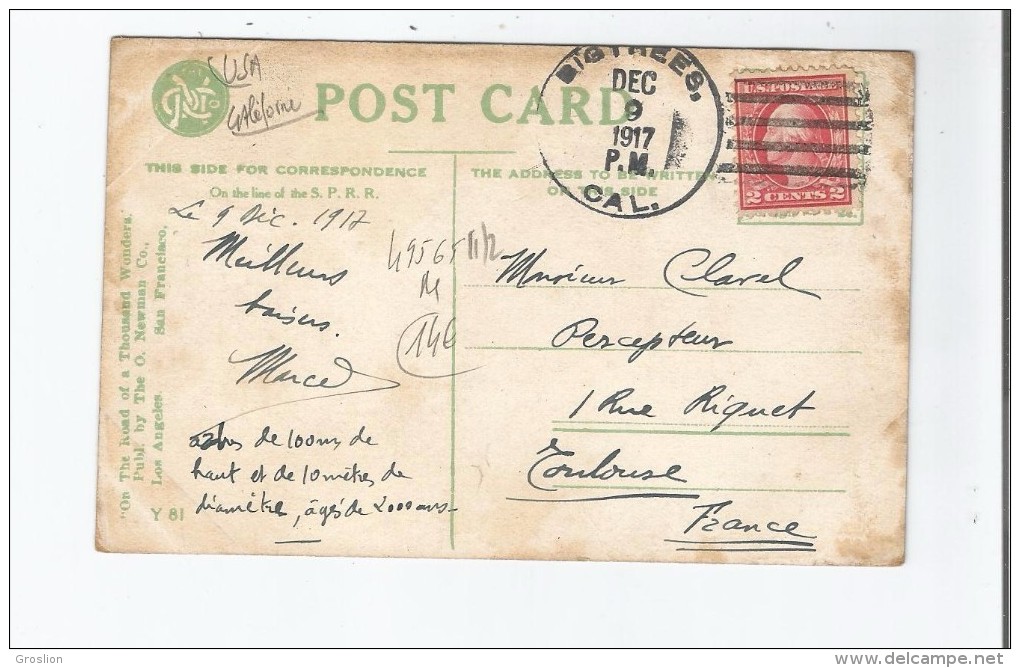 USA
Californie
POST CARD
BIGTREES,
DEC
9
1917
P.M.
CAL.
U.S. POSTAGE
2 CENTS 2
THIS SIDE FOR CORRESPONDENCE
On the line of the S. P. R. R.
THE ADDRESS TO BE WRITTEN
ON THIS SIDE
"On The Road of a Thousand Wonders."
Publ. by The O. Newman Co.,
Los Angeles. San Francisco.
Y 81
Le 9 Déc. 1917
Meilleurs
baisers.
Marcel
arbres de 100 ms de
haut et de 10 mètres de
diamètre, âgés de 2000 ans -
49565 11/2
M
14E
Monsieur Clavel
Percepteur
1 Rue Riquet
Toulouse
France
Groslion
www.delcampe.net